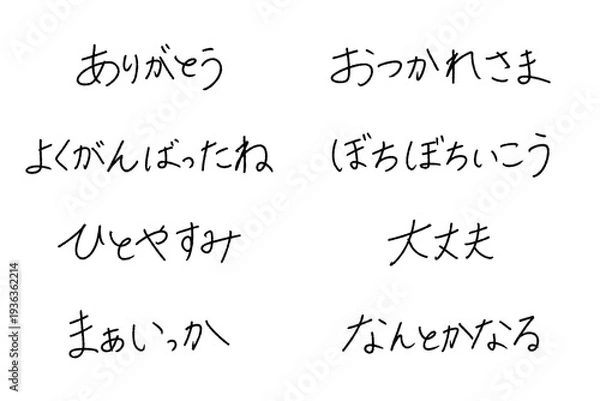 ありがとう
おつかれさま
よくがんばったね
ぼちぼちいこう
ひとやすみ
大丈夫
まぁいっか
なんとかなる
Adobe Stock | #1936362214